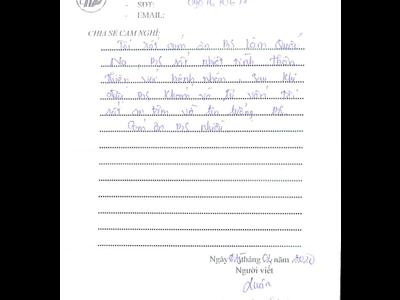 - SĐT:
- EMAIL:
CHIA SẺ CẢM NGHĨ:
Tôi rất cám ơn BS Lâm Quốc
, BS rất nhiệt tình thân
thiện với bệnh nhân. Sau khi
BS khám và tư vấn tôi
rất an tâm và tin tưởng BS
Cám ơn BS nhiều
Ngày tháng năm
Người viết